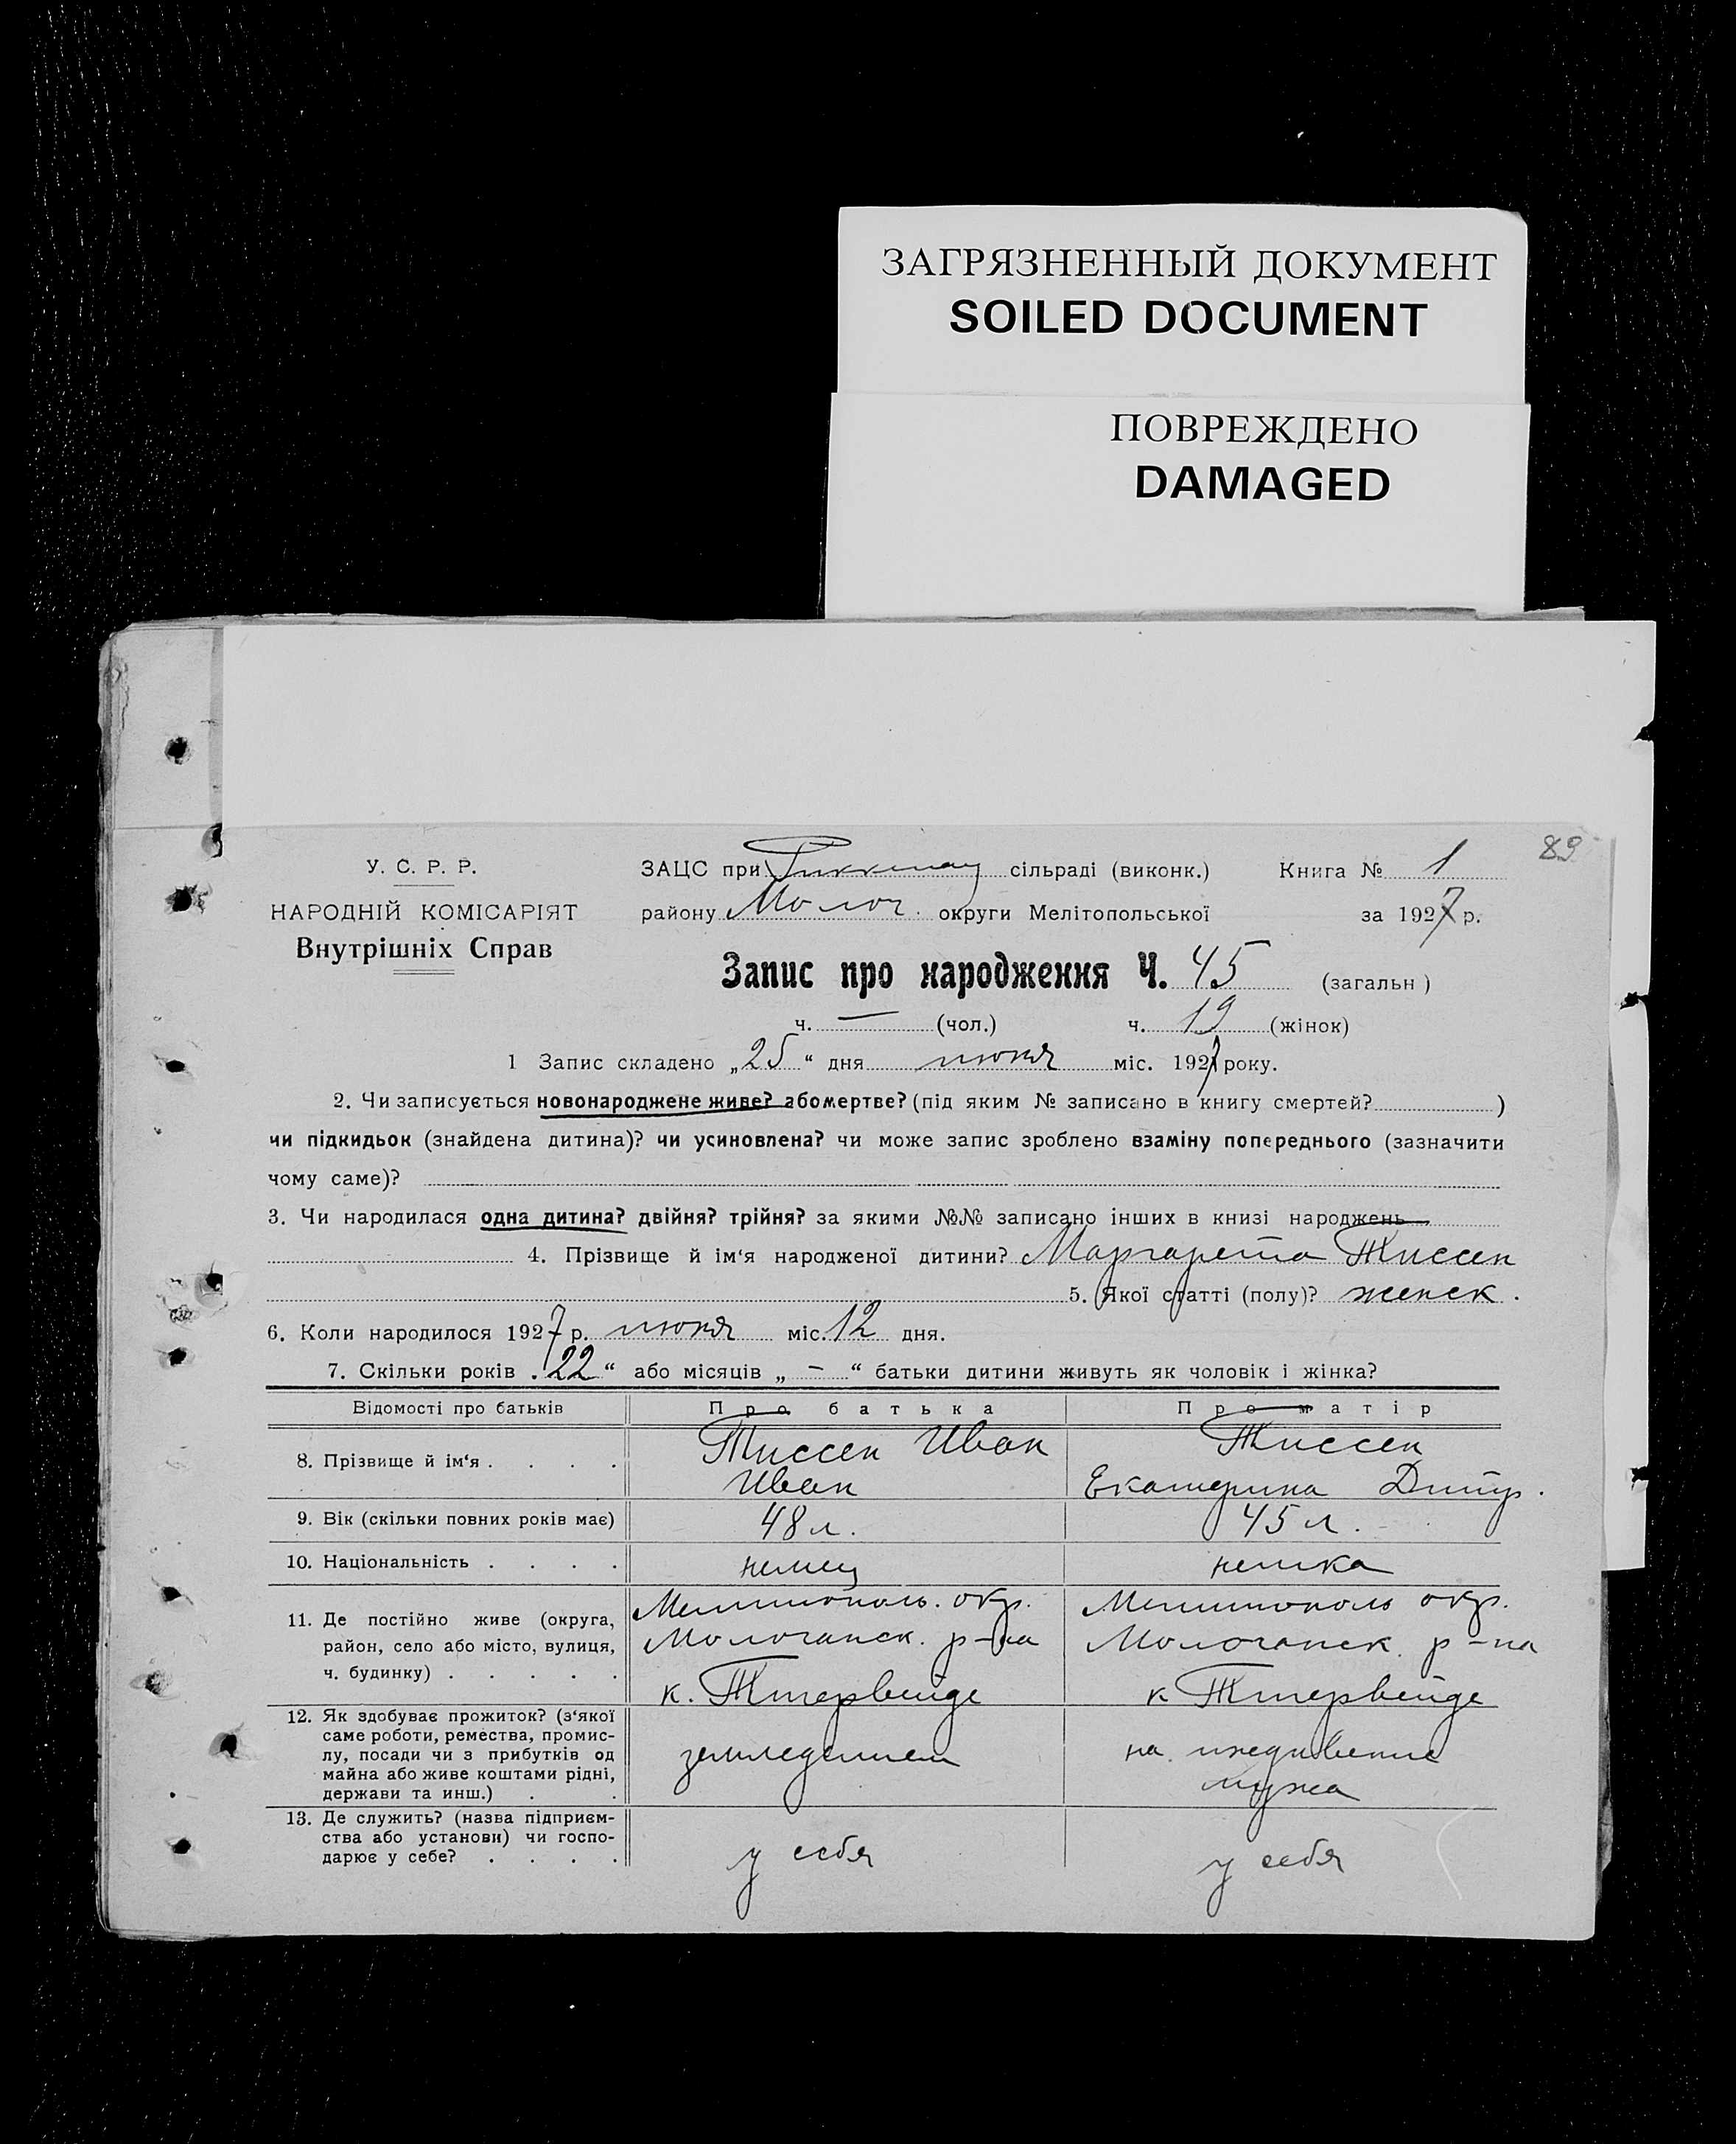 ЗАГРЯЗНЕННЫЙ ДОКУМЕНТ
SOILED DOCUMENT
ПОВРЕЖДЕНО
DAMAGED
89
У. С. Р. Р.
НАРОДНІЙ КОМІСАРІЯТ
Внутрішніх Справ
ЗАЦС при Риккенау сільраді (виконк.) Книга № 1
району Молоч. округи Мелітопольської за 1927 р.
Запис про народження Ч. 45 (загальн )
ч. — (чол.) ч. 19 (жінок)
1 Запис складено „25“ дня июня міс. 1927 року.
2. Чи записується новонароджене живе? або мертве? (під яким № записано в книгу смертей? )
чи підкидьок (знайдена дитина)? чи усиновлена? чи може запис зроблено взаміну попереднього (зазначити
чому саме)?
3. Чи народилася одна дитина? двійня? трійня? за якими №№ записано інших в книзі народжень —
4. Прізвище й ім‘я народженої дитини? Маргарета Тиссен
5. Якої статті (полу)? женск.
6. Коли народилося 1927 р. июня міс. 12 дня.
7. Скільки років „22“ або місяців „—“ батьки дитини живуть як чоловік і жінка?
Відомості про батьків Про батька Про матір
8. Прізвище й ім‘я . . . . Тиссен Иван Тиссен
Иван Екатерина Дитр.
9. Вік (скільки повних років має) 48 л. 45 л.
10. Національність . . . . немец немка
11. Де постійно живе (округа, район, село або місто, вулиця, ч. будинку) . . . . .
Мелитополь. окр. Мелитополь окр.
Молочанск. р-на Молочанск. р-на
к. Тигервейде к. Тигервейде
12. Як здобуває прожиток? (з‘якої
саме роботи, ремества, промис-
лу, посади чи з прибутків од
майна або живе коштами рідні,
держави та инш.) . .
земледелием на иждивение
мужа
13. Де служить? (назва підприєм-
ства або установи) чи госпо-
дарює у себе? . . . .
у себя у себя